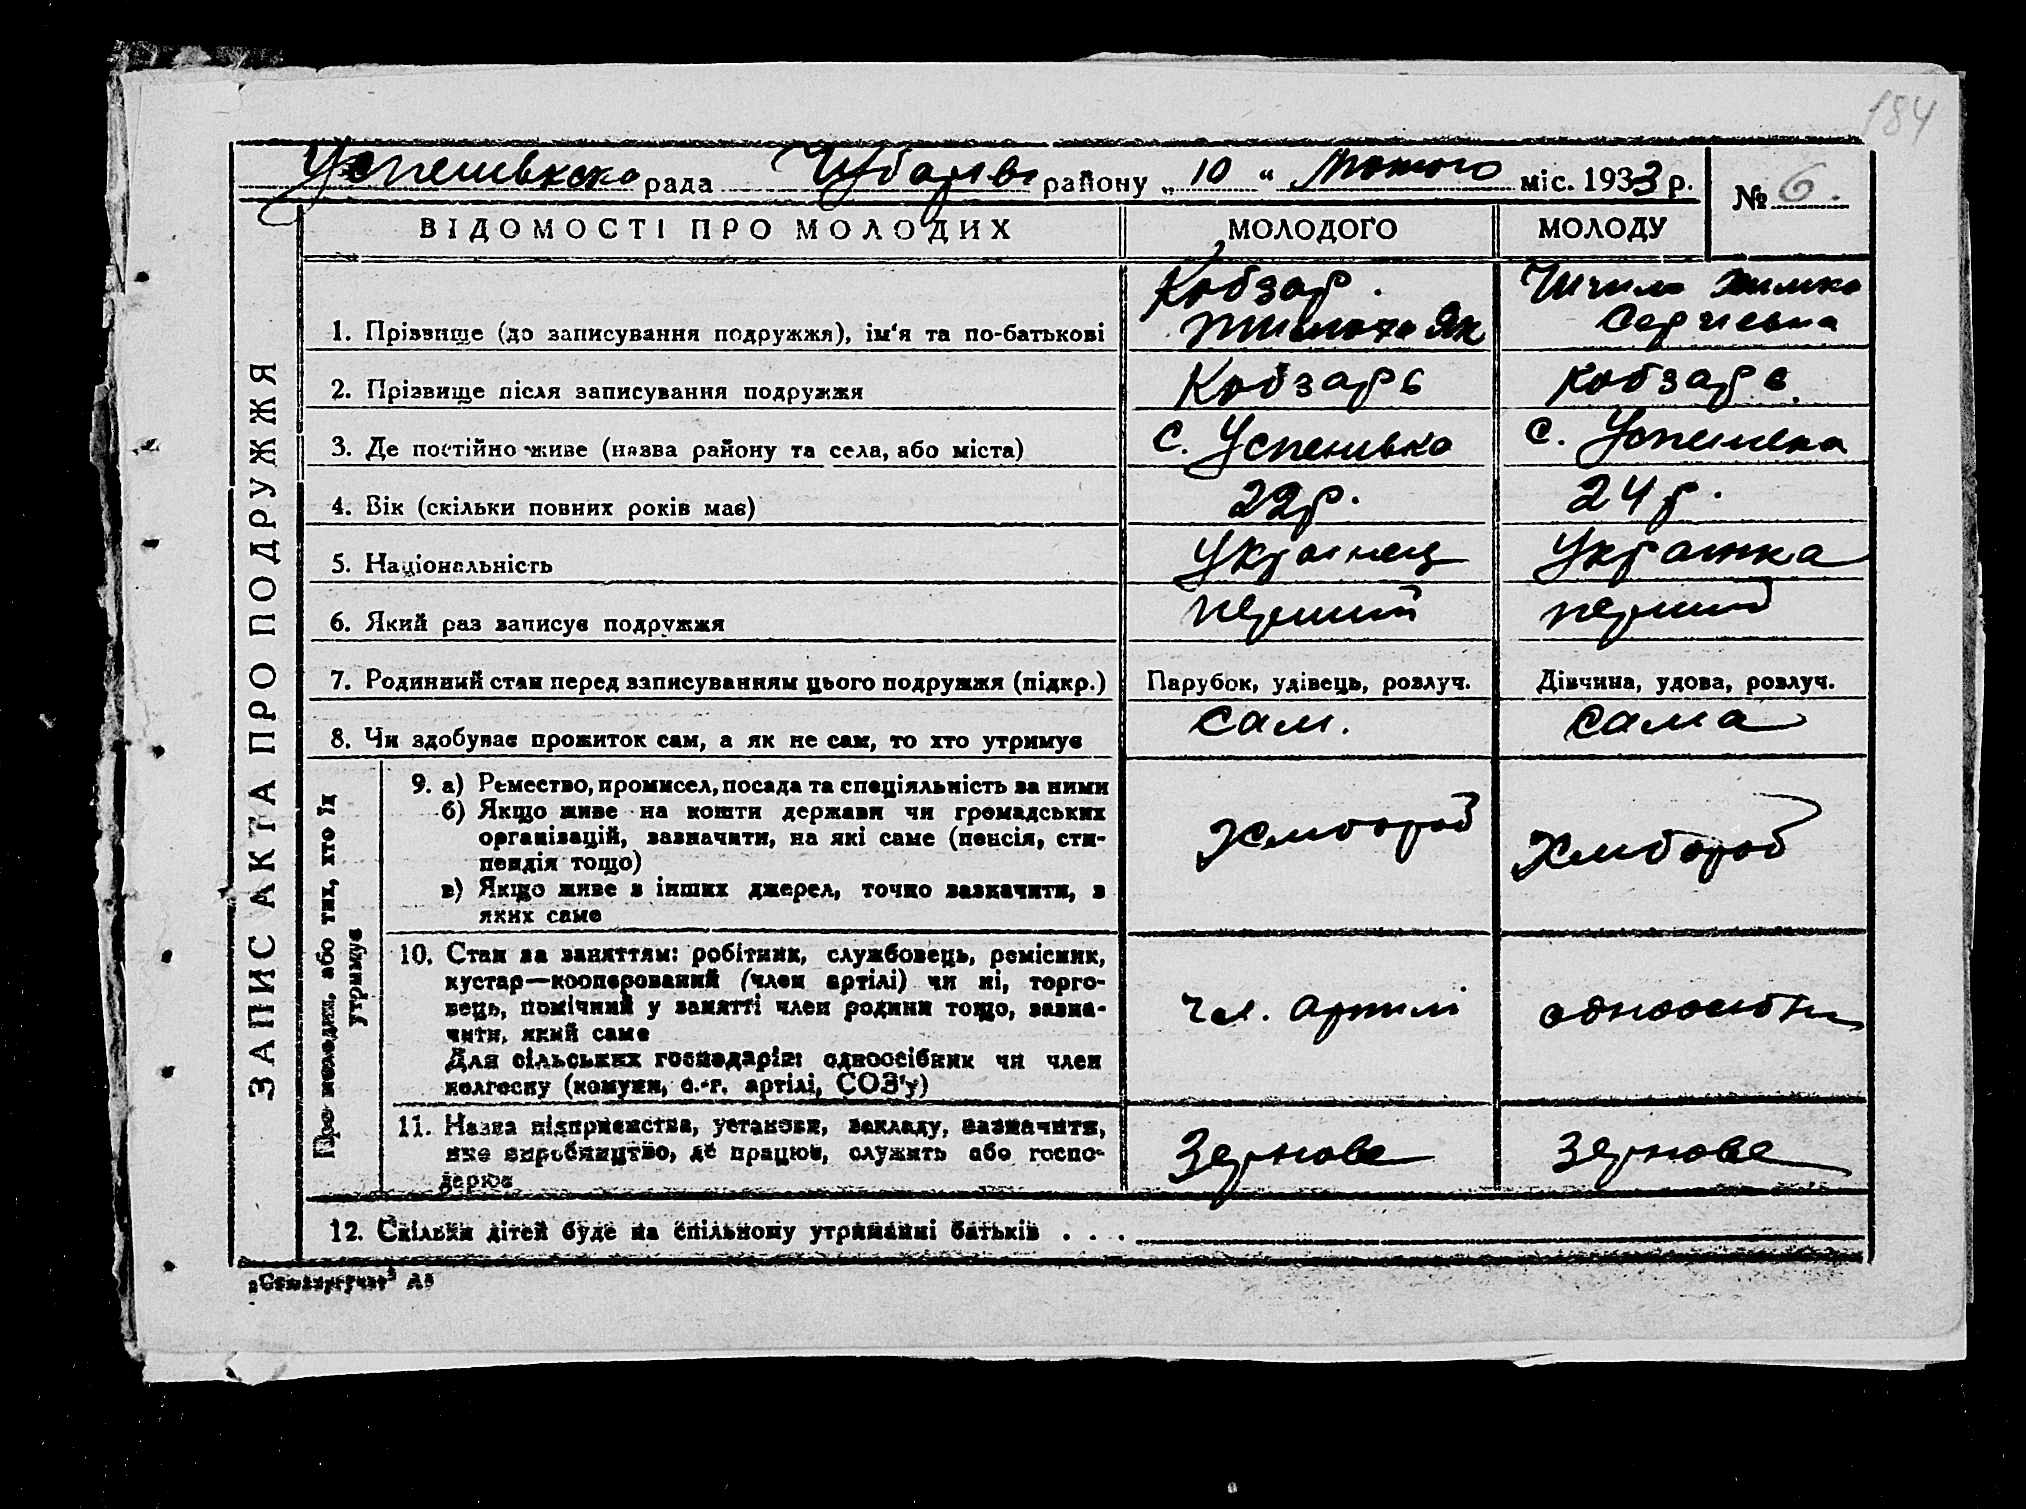 184
Успенівська рада Чубарівс району „ 10 “ Лютого міс. 1933 р. № 6.
ВІДОМОСТІ ПРО МОЛОДИХ МОЛОДОГО МОЛОДУ
ЗАПИС АКТА ПРО ПОДРУЖЖЯ
Кобзар.
Сергіевна
1. Прізвище (до записування подружжя), ім'я та по-батькові Тимоха Як
2. Прізвище після записування подружжя Кобзарь Кобзарь
3. Де постійно живе (назва району та села, або міста) с. Успенівка с. Успенівка
4. Вік (скільки повних років має) 22 р. 24 р.
5. Національність Українец Українка
6. Який раз записує подружжя перший перший
7. Родинний стан перед записуванням цього подружжя (підкр.) Парубок, удівець, розлуч. Дівчина, удова, розлуч.
8. Чи здобуває прожиток сам, а як не сам, то хто утримує сам. сама
Про молодих, або тих, хто їх
утримує
9. а) Ремество, промисел, посада та спеціяльність за ними
б) Якщо живе на кошти держави чи громадських
організацій, зазначити, на які саме (пенсія, сти-
пендія тощо)
в) Якщо живе з інших джерел, точно зазначити, з
яких саме
Хлибороб Хлибороб
10. Стан за заняттям: робітник, службовець, ремісник,
кустар—кооперований (член артілі) чи ні, торго-
вець, помічний у занятті член родини тощо, зазна-
чити, який саме
Для сільських господарів: одноосібник чи член
колгоспу (комуни, с.-г. артілі, СОЗ'у)
чл. артилі
11. Назва підприємства, установи, закладу, зазначити,
яке виробництво, де працює, служить або госпо-
дарює
Зернове Зернове
12. Скільки дітей буде на спільному утриманні батьків . . .